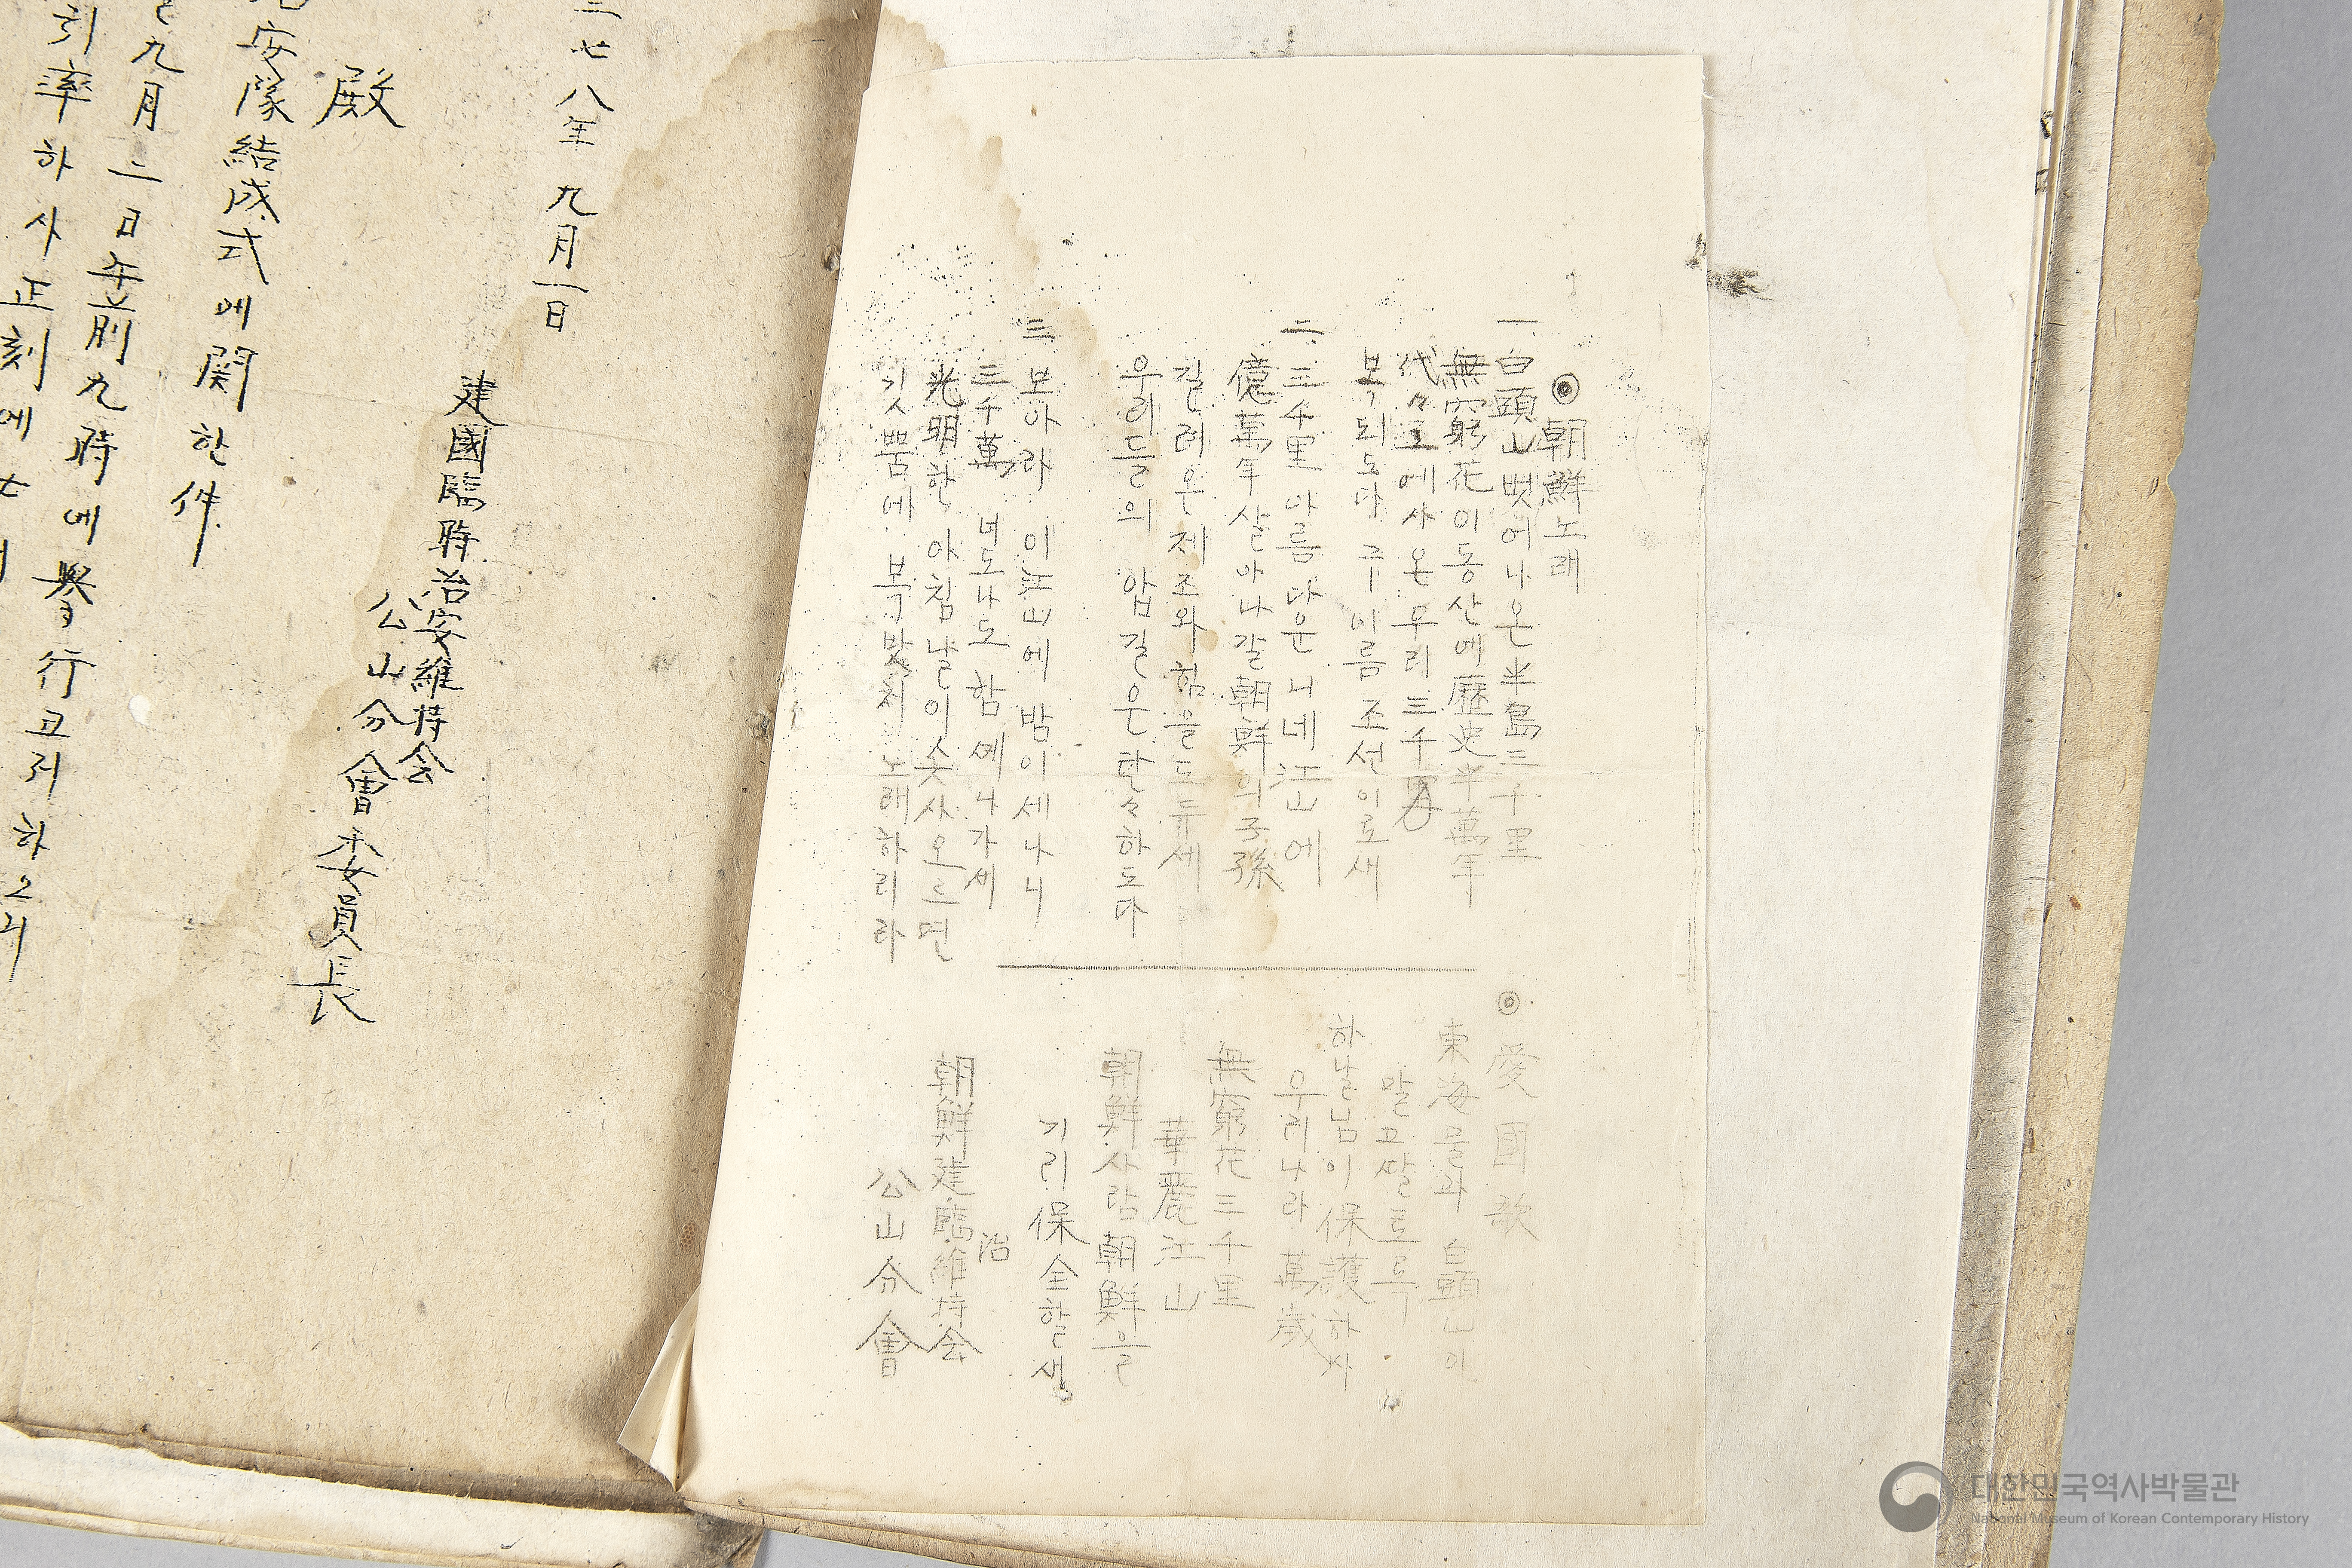 ◎朝鮮노래
一 白頭山뻣어나온半島三千里
無窮花이동산에歷史半萬年
代々로예사온우리三千
복되도다 구이름조선이로새
二、三千里 아름다운 니네江山에
億萬年살아나갈朝鮮의子孫
길러온 제조와힘을도두세
우리들의 압길은탄々하도다
三 보아라 이江山에 밤이세나니
三千萬 녀도나도 함께나가세
光明한 아침날이솟사오르면
깃뿜에 복밧처 노래하리라
◎ 愛國歌
東海물과 白頭山이
말고쌀토록
하날님이保護하사
우리나라 萬歲
無窮花三千里
華麗江山
朝鮮사람朝鮮을
기리保全할새
治
朝鮮建臨維持会
公山分會
三七八年 九月一日
建國臨時治安維持会
公山分會委員長
殿
安隊結成式에関한件
九月二日午前九時에擧行코저하오니
引率하사正刻에
대한민국역사박물관
National Museum of Korean Contemporary History